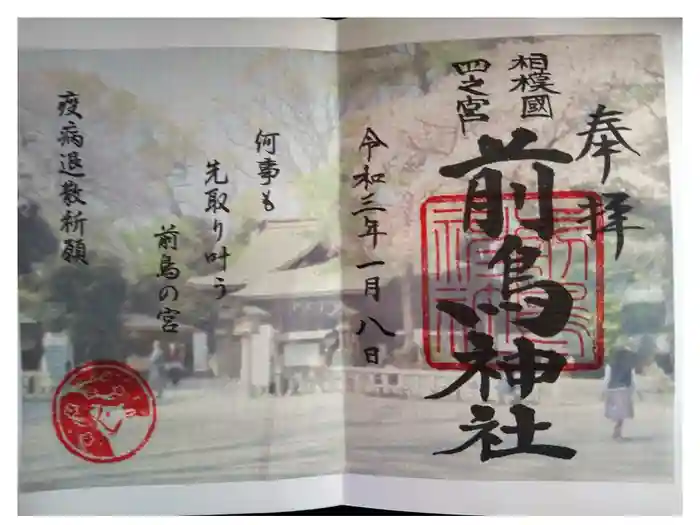 奉拝
相模國
四之宮
前鳥神社
令和三年一月八日
何事も
先取り叶う
前鳥の宮
疫病退散祈願